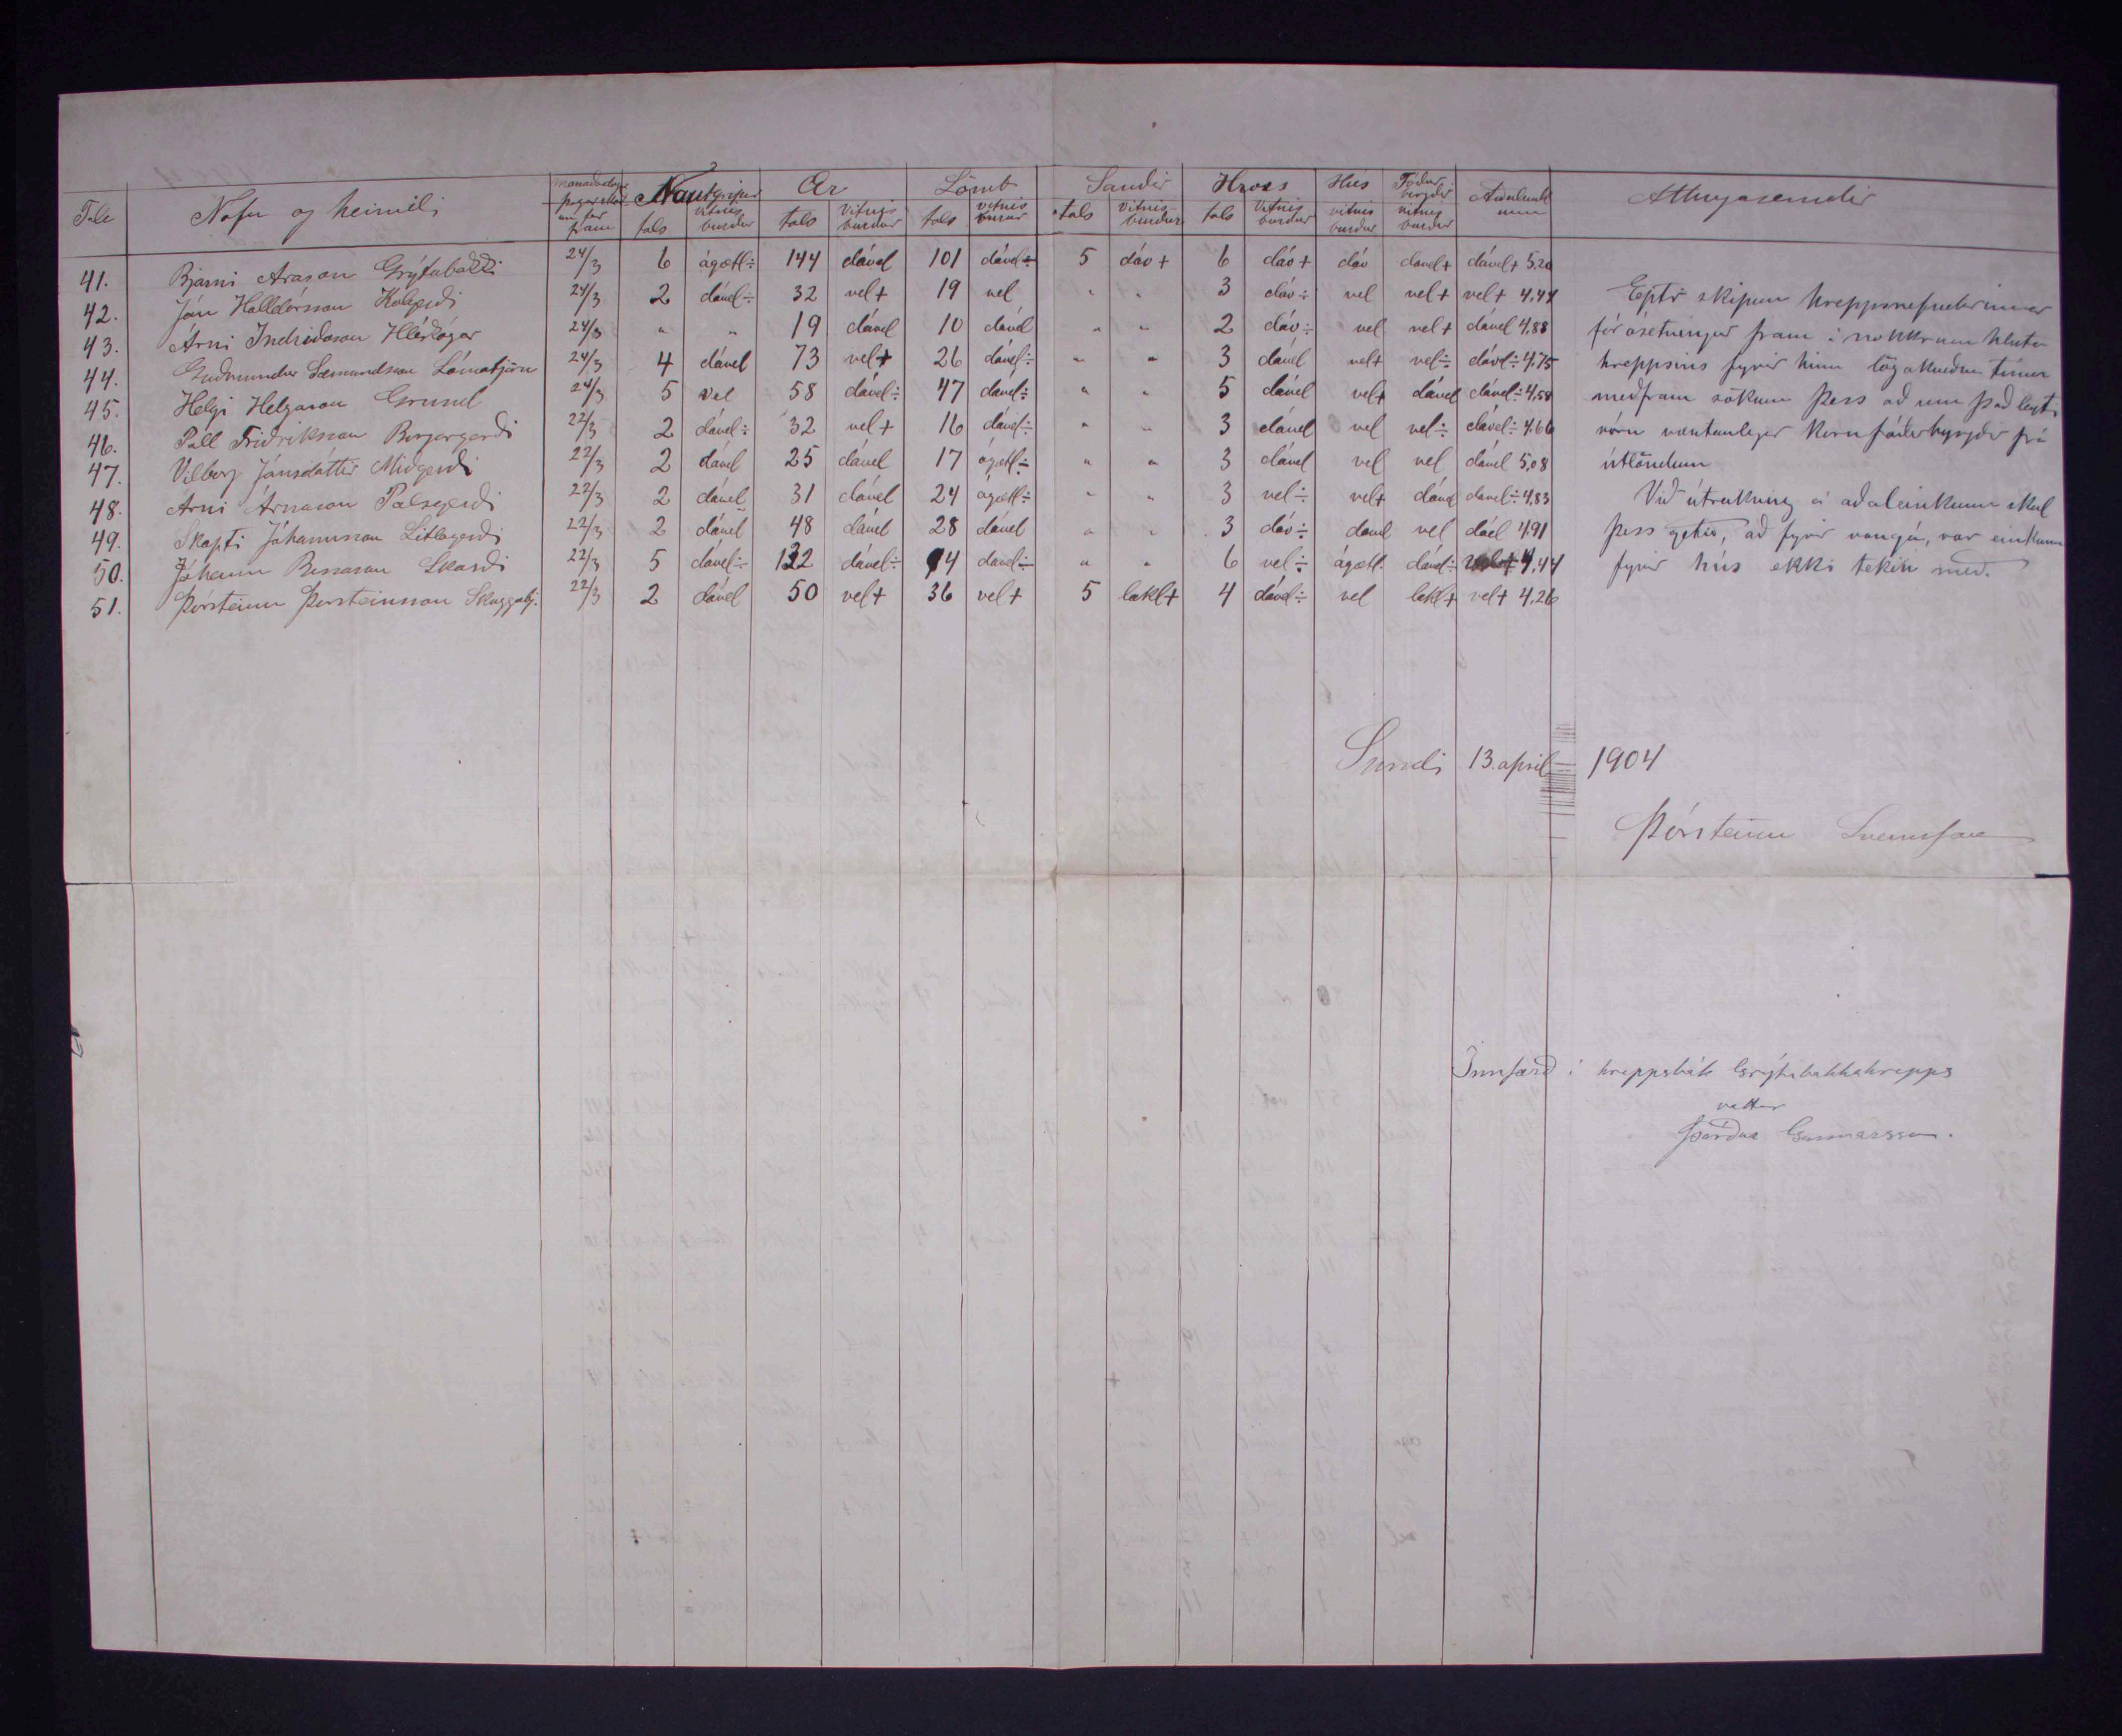 Tale Nöfn og heimili mánaðardagr þegar skoðun fór fram Nautgripir Ær Lömb Sauðir Hross Hús Fóður birgðir Aðaleinkunn Athugasemdir
tals vitnis burður tals vitnis burður tals vitnis burður tals vitnis burður tals vitnis burður vitnis burður vitnis burður
41. Bjarni Arason Grýtubakki 24/3 6 ágætl÷ 144 dável 101 dável÷ 5 dáv+ 6 dáv+ dáv davel+ dável+ 5,20
42. Jón Halldórsson Kolgerði 24/3 2 dável÷ 32 vel+ 19 vel " " 3 dáv÷ vel vel+ vel+ 4,44
43. Árni Indriðason Hléskógar 24/3 " " 19 dável 10 dável " " 2 dáv÷ vel vel+ dável 4,88
44. Guðmundur Sæmundsson Lómatjörn 24/3 4 dável 73 vel+ 26 dável÷ " " 3 dável vel+ vel÷ dável÷ 4,75
45. Helgi Helgason Grund 24/3 5 vel 58 dável÷ 47 davel÷ " " 5 dável vel+ dável dável÷ 4,58
46. Páll Friðriksson Borgargerði 22/3 2 dável÷ 32 vel+ 16 dável÷ " " 3 dável vel vel÷ dável÷ 4,66
47. Vilborg Jónsdóttir Miðgerði 22/3 2 dável 25 dável 17 ágætl÷ " " 3 dável vel vel dável 5,08
48. Arni Árnason Pálsgerði 22/3 2 dável 31 dável 24 ágætl÷ " " 3 vel÷ vel+ dável davel÷ 4,83
49. Skapti Jóhannsson Litlagerði 22/3 2 dável 48 dável 28 dável " " 3 dáv÷ davel vel dáel 4,91
50. Jóhann Bessason Skarði 22/3 5 dável÷ 132 dável÷ 94 davel÷ " " 6 vel÷ ágætl. dável÷ vel+ 4,44
51. Þorsteinn Þorsteinsson Skuggabj. 22/3 2 dável 50 vel+ 36 vel+ 5 lakl+ 4 dável÷ vel lakl+ vel+ 4,26
Eptir skipun hreppsnefndarinnar
fór ásetningur fram í nokkrum hluta
hreppsins fyrir hinn lögákveðna tíma
meðfram sökum þess að um það leyti
vóru væntanlegar kornfóðurbyrgðir frá
útlöndum
Við útreikning á aðaleinkunn skal
þess getið, að fyrir vangá, var einkunn
fyrir hús ekki tekin með.
Sundi 13. april 1904
Þórsteinn
Innfærð í hreppsbók Grýtubakkahrepps
vottar
Þórður Gunnarsson.